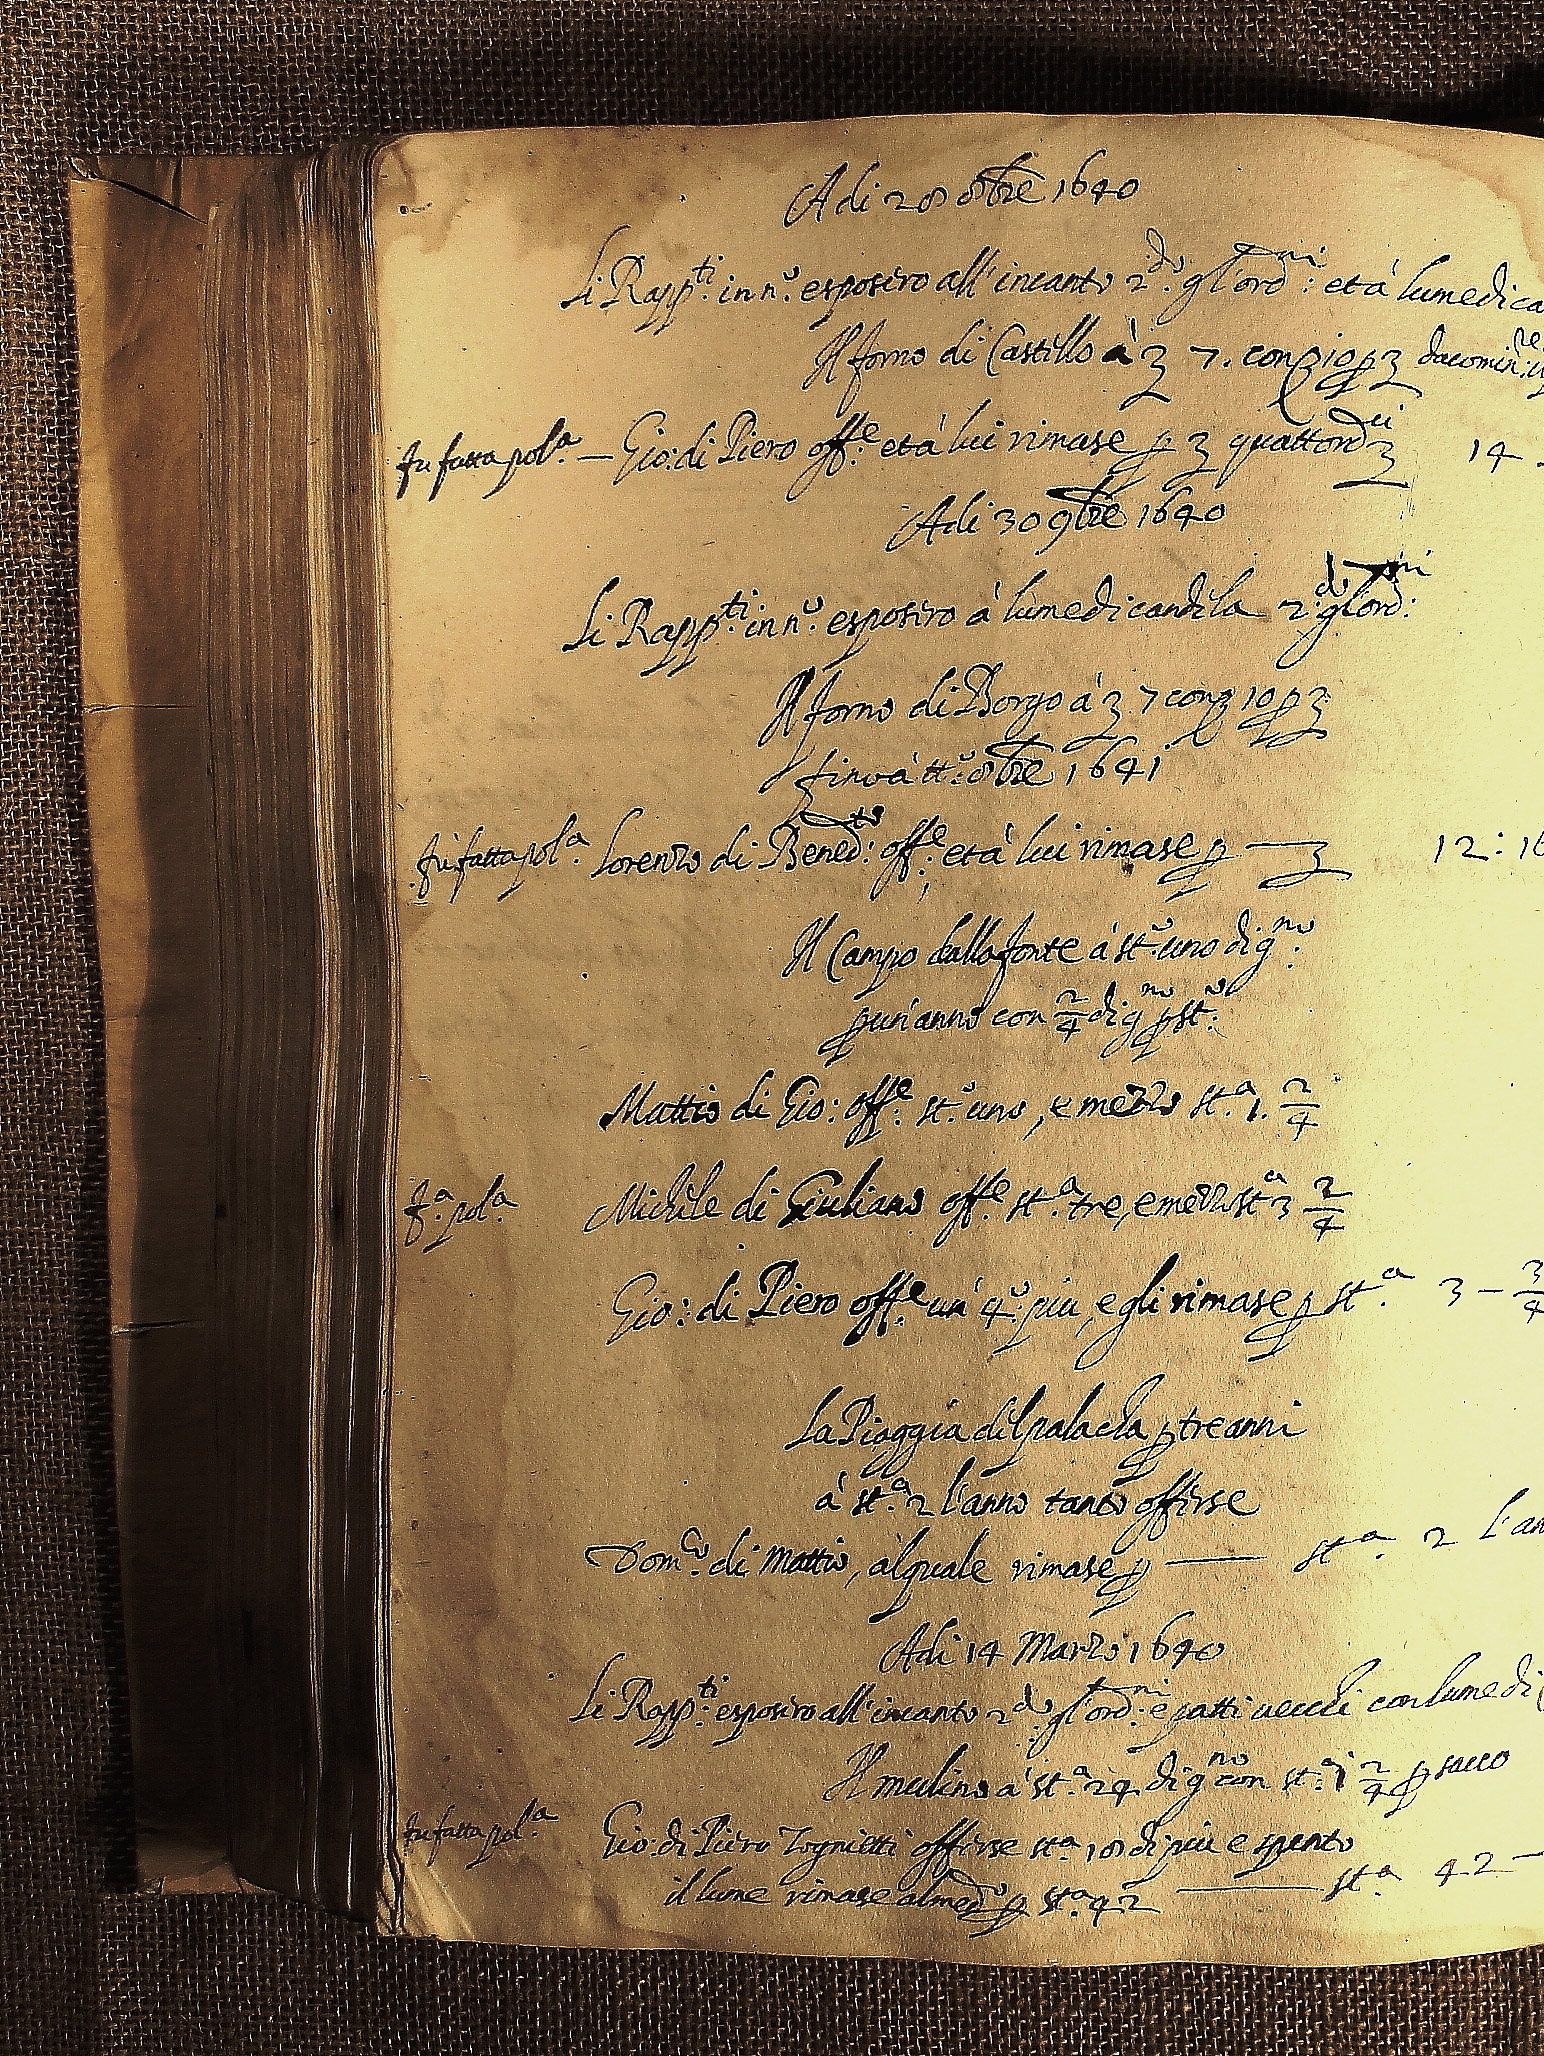 Adi 28 8bre 1640
Li Rapp.ti in n.o esposiro all'incanto 2.do gl'ord.ni: et à lume di ca
Il forno di Castillo à 3 7. con 3 10 p 3
fu fatta pol.a — Gio: di Piero off.e et à lui rimase p 3 quattordici 3 14
Adi 30 9bre 1640
Li Rapp.ti in n.o esposiro à lume di candila 2.do gl'ord.ni:
Il forno di Borgo à 3 7 con 3 10 p 3
fino à tt.o 8bre 1641
fu fatta pol.a Lorenzo di Bened.to: off.e et à lui rimase p — 3 12:16
Il Campo dalla fonte à st.o uno di g.no:
p un'anno con 2/4 di g.no p st.o:
Mattio di Gio: off.e: st.o uno, e mezzo st.a 1. 2/4
f.a pol.a Michile di Giuliano off.e st.a tre, e mezzo st.a 3 2/4
Gio: di Piero off.e un' 4.o più, e gli rimase p st.a 3 - 3/4
La Piaggia dil p tre anni
à st.a 2 l'anno tanto offirse
Dom.co di Mattio, al quale rimase p — st.a 2 l'an
Adi 14 Marzo 1640
Li Rapp.ti esposiro all'incanto 2.do gl'ord.ni e patti uecchi con lume di
Il mulino à st.a 24 di g.no con st.a 1 2/4 p sacco
fu fatta pol.a Gio: di Piero Tognietti offirse st.a 18 di più e spento
il lume rimase al med.o p st.a 42 — st.a 42 —